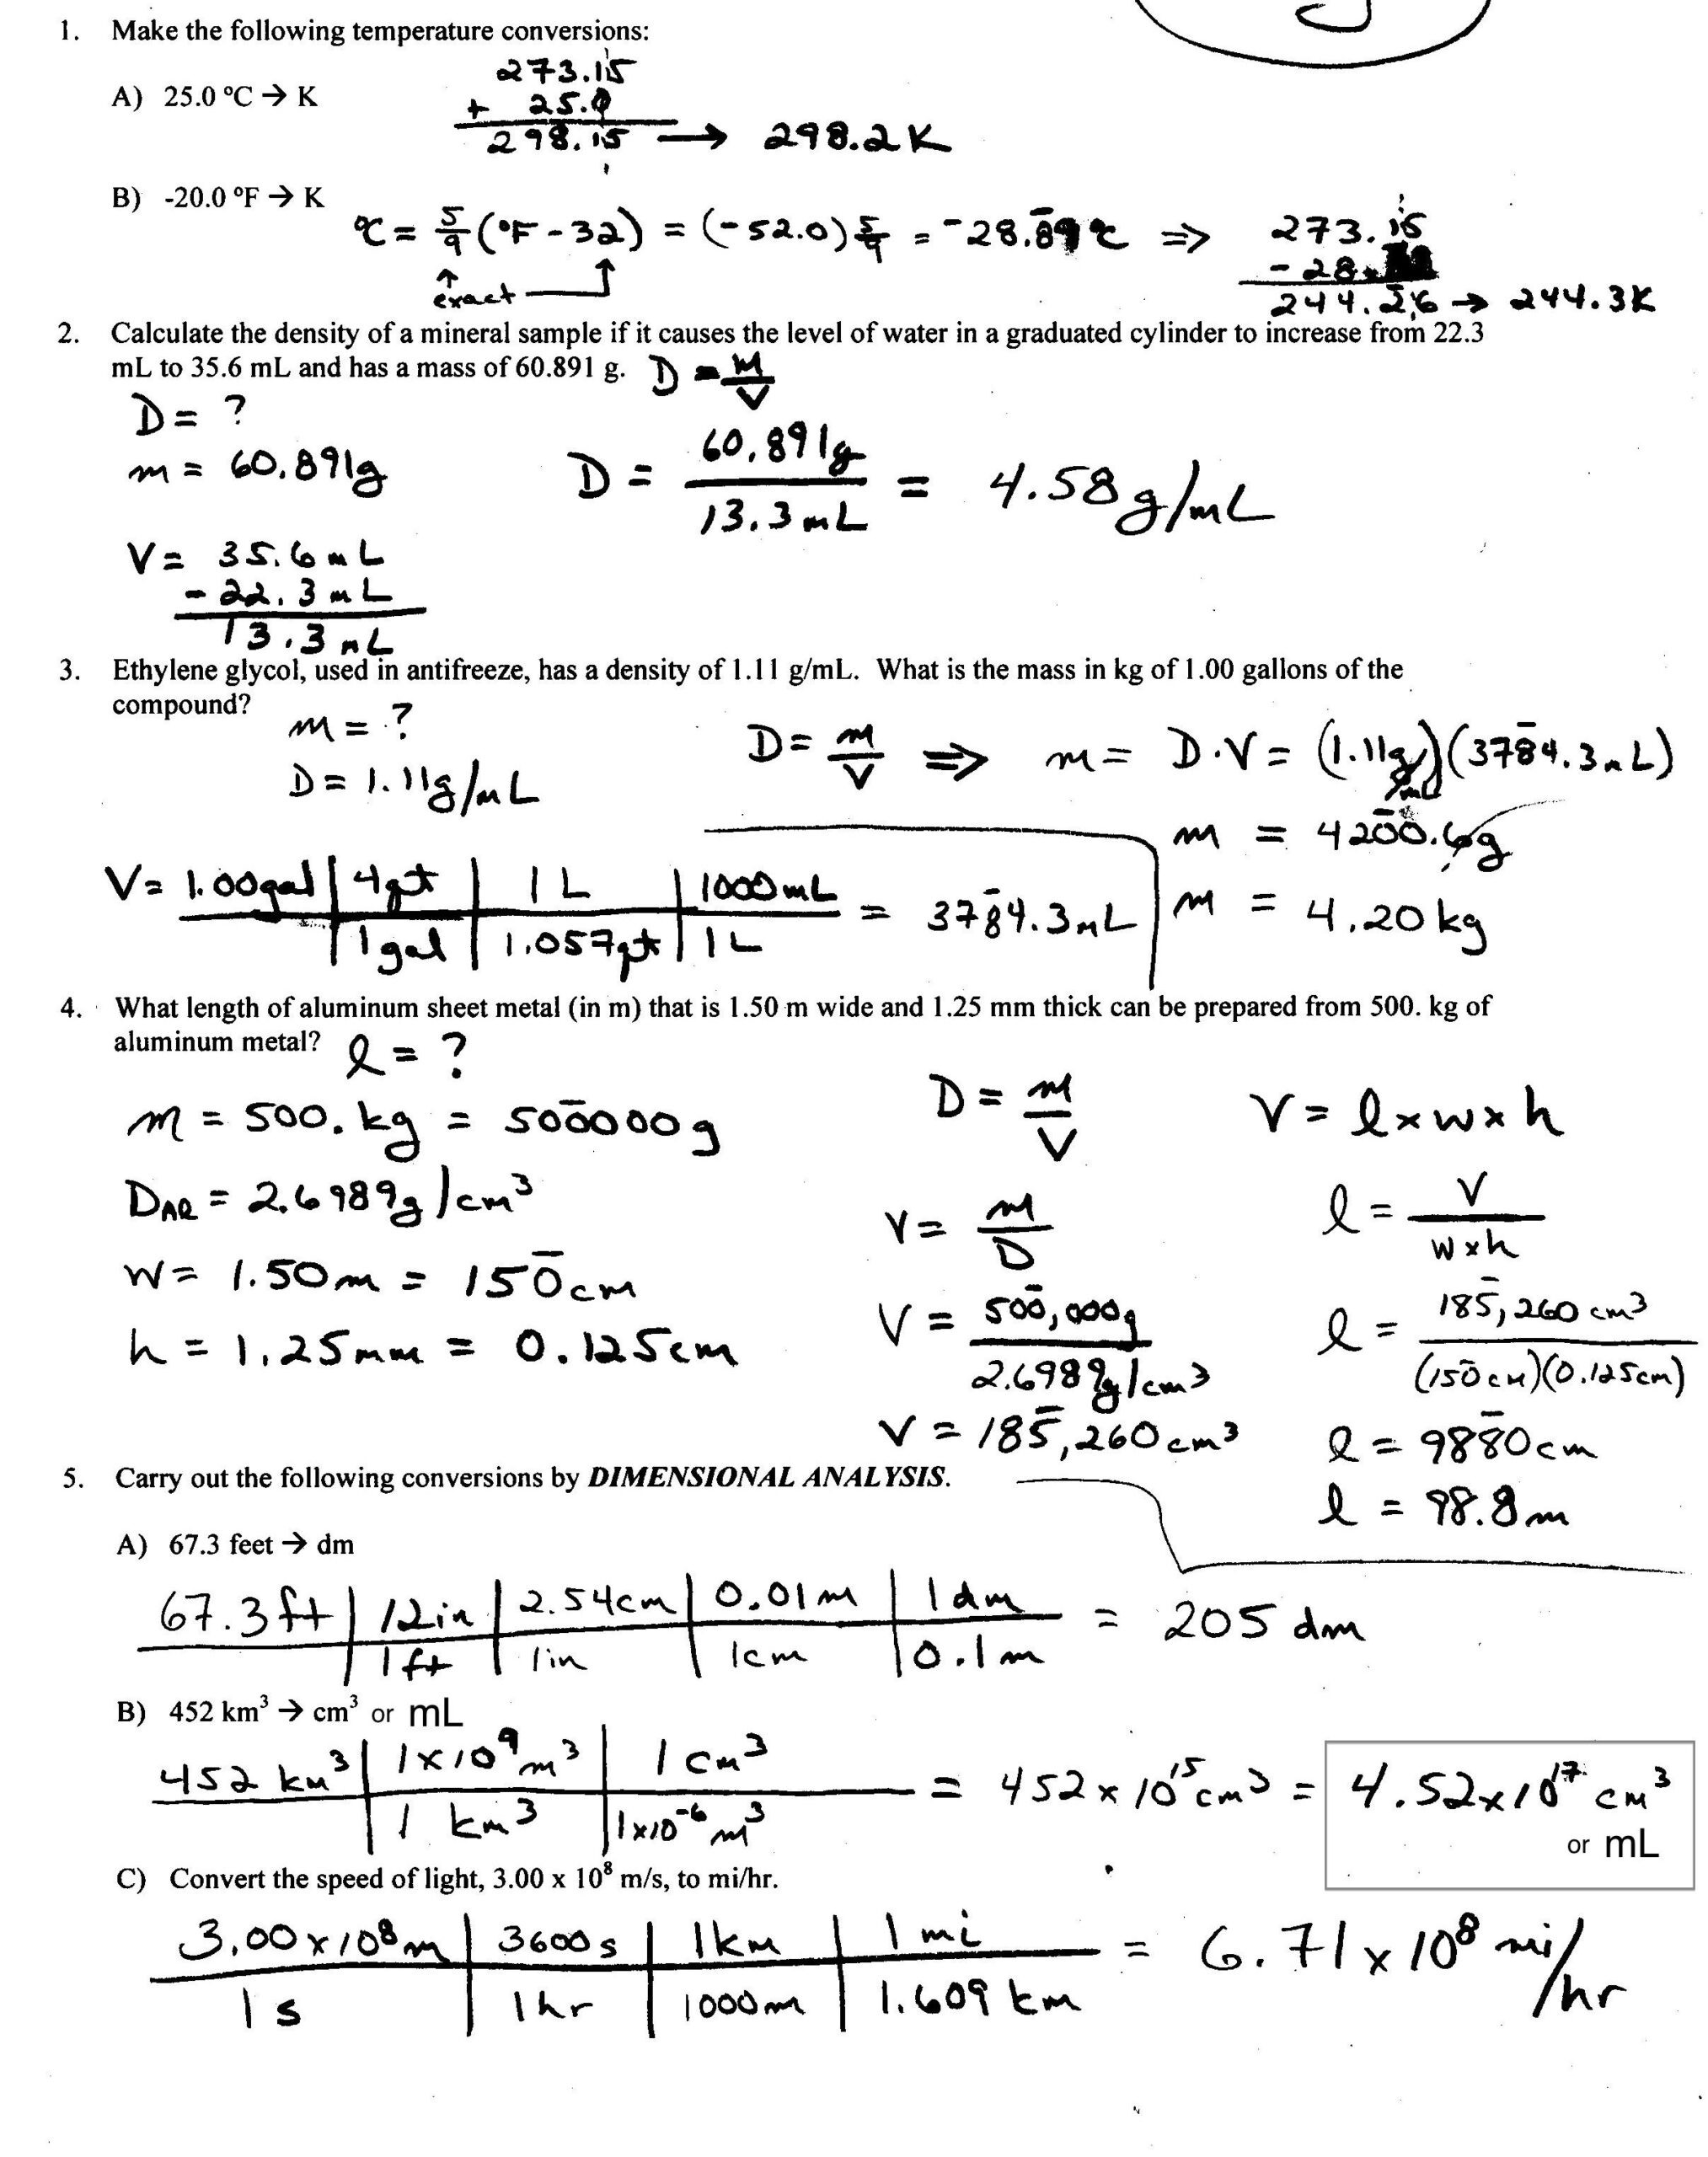 1. Make the following temperature conversions:
273.15
A) 25.0 °C → K
+ 25.0
298.15 → 298.2K
B) -20.0 °F → K
°C = 5/9 (°F - 32) = (-52.0) 5/9 = -28.89 °C ⇒ 273.15
- 28.
exact
244.26 → 244.3K
2. Calculate the density of a mineral sample if it causes the level of water in a graduated cylinder to increase from 22.3
mL to 35.6 mL and has a mass of 60.891 g. D = M/V
D = ?
m = 60.891g
D = 60.891g / 13.3 mL = 4.58 g/mL
V = 35.6 mL
- 22.3 mL
13.3 mL
3. Ethylene glycol, used in antifreeze, has a density of 1.11 g/mL. What is the mass in kg of 1.00 gallons of the
compound?
m = ?
D = m/V ⇒ m = D·V = (1.11g/mL)(3784.3mL)
D = 1.11g/mL
m = 4200.6g
V = 1.00gal | 4qt / 1gal | 1L / 1.057qt | 1000mL / 1L = 3784.3mL
m = 4.20kg
4. What length of aluminum sheet metal (in m) that is 1.50 m wide and 1.25 mm thick can be prepared from 500. kg of
aluminum metal? l = ?
m = 500. kg = 500000g
D = m/V
V = l x w x h
DAl = 2.6989g/cm³
V = m/D
l = V / w x h
w = 1.50m = 150cm
V = 500,000g / 2.6989g/cm³
l = 185,260cm³ / (150cm)(0.125cm)
h = 1.25mm = 0.125cm
V = 185,260cm³
l = 9880cm
l = 98.8m
5. Carry out the following conversions by DIMENSIONAL ANALYSIS.
A) 67.3 feet → dm
67.3ft | 12in / 1ft | 2.54cm / 1in | 0.01m / 1cm | 1dm / 0.1m = 205 dm
B) 452 km³ → cm³ or mL
452 km³ | 1x10⁹m³ / 1 km³ | 1 cm³ / 1x10⁻⁶m³ = 452 x 10¹⁵cm³ = 4.52x10¹⁷ cm³
or mL
C) Convert the speed of light, 3.00 x 10⁸ m/s, to mi/hr.
3.00x10⁸m / 1s | 3600s / 1hr | 1km / 1000m | 1 mi / 1.609 km = 6.71 x 10⁸ mi/hr